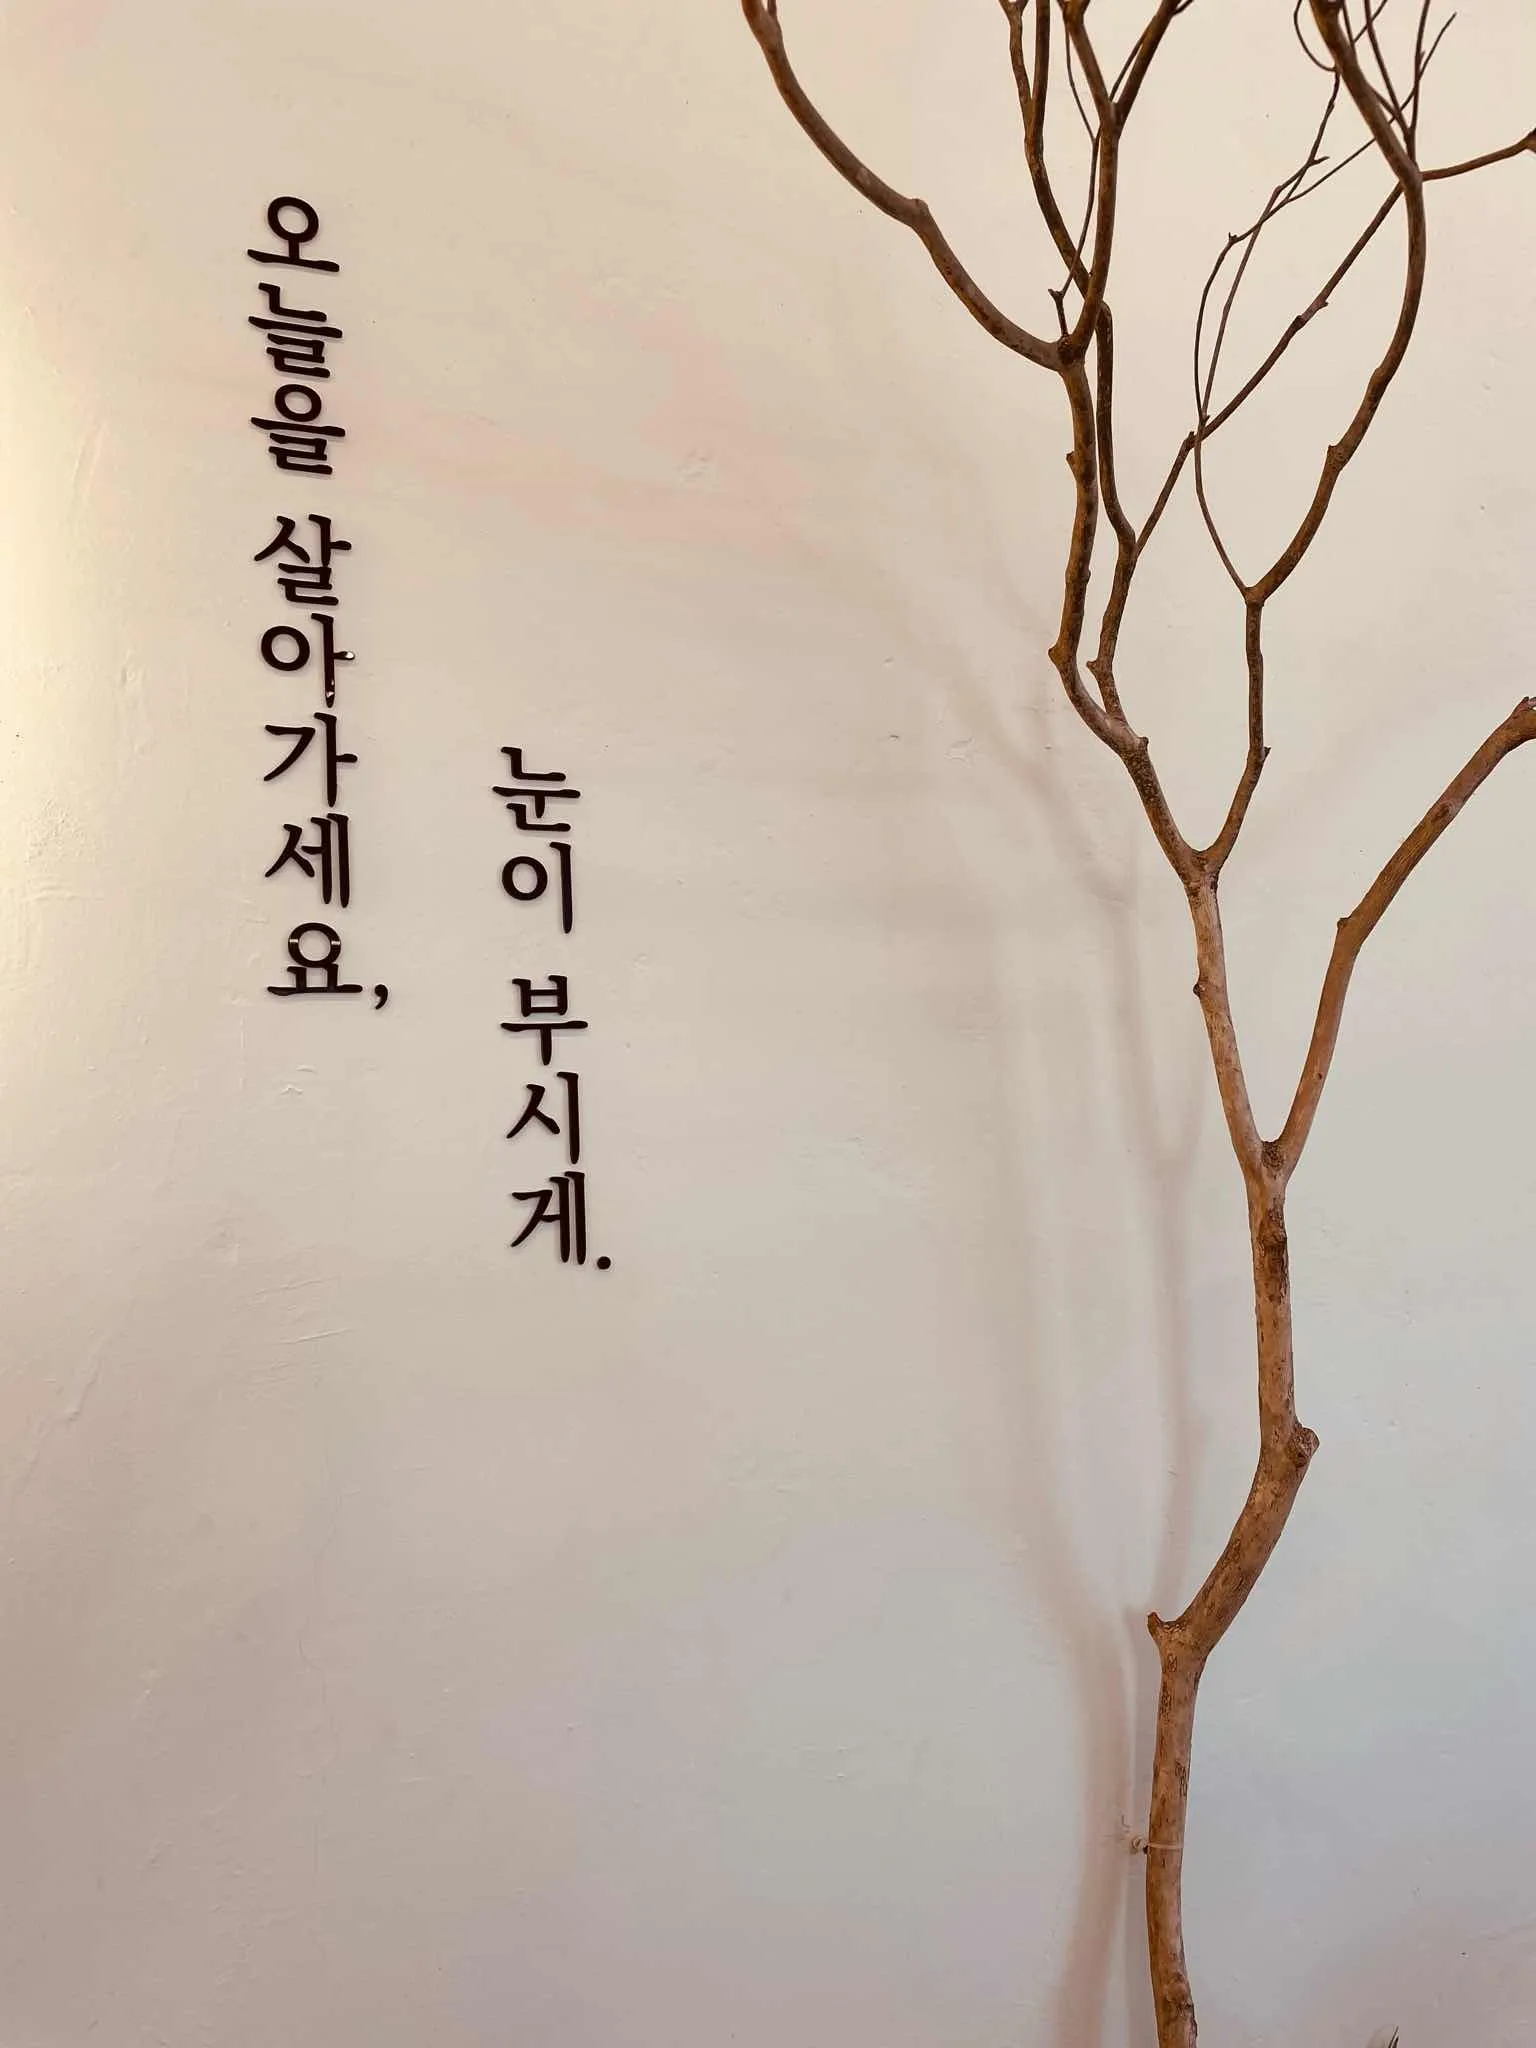 오늘을 살아가세요,
눈이 부시게.